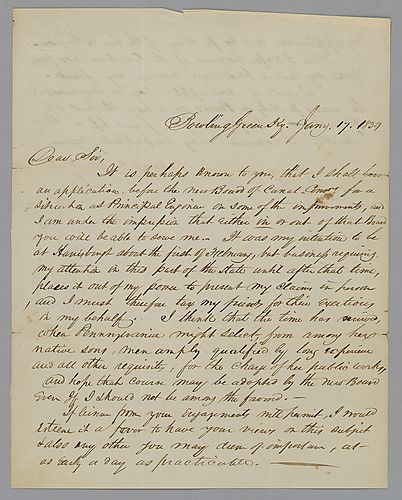 Bowling Green Ky. Jany. 17. 1839
Dear Sir,
It is perhaps known to you, that I shall have
an application before the new Board of Canal Comrs for a
situation as Principal Engineer on some of the improvements, and
I am under the impression that either in or out of that Board
you will be able to serve me. It was my intention to be
at Harrisburgh about the first of February, but business requiring
my attention in this part of the State until after that time,
places it out of my power to present my claims in person
and I must therefore tax my friends for their exertions
in my behalf. I think that the time has arrived,
when Pennsylvania might select from among her
native sons, men amply qualified by long experience
and all other requisits, for the charge of her public works,
and hope that course may be adopted by the new Board
Even if I should not be among the favored. —
If leisure from your engagements will permit, I would
esteem it a favor to have your views on this subject
& also any other you may deem of importance, at
as early a day as practicable. —